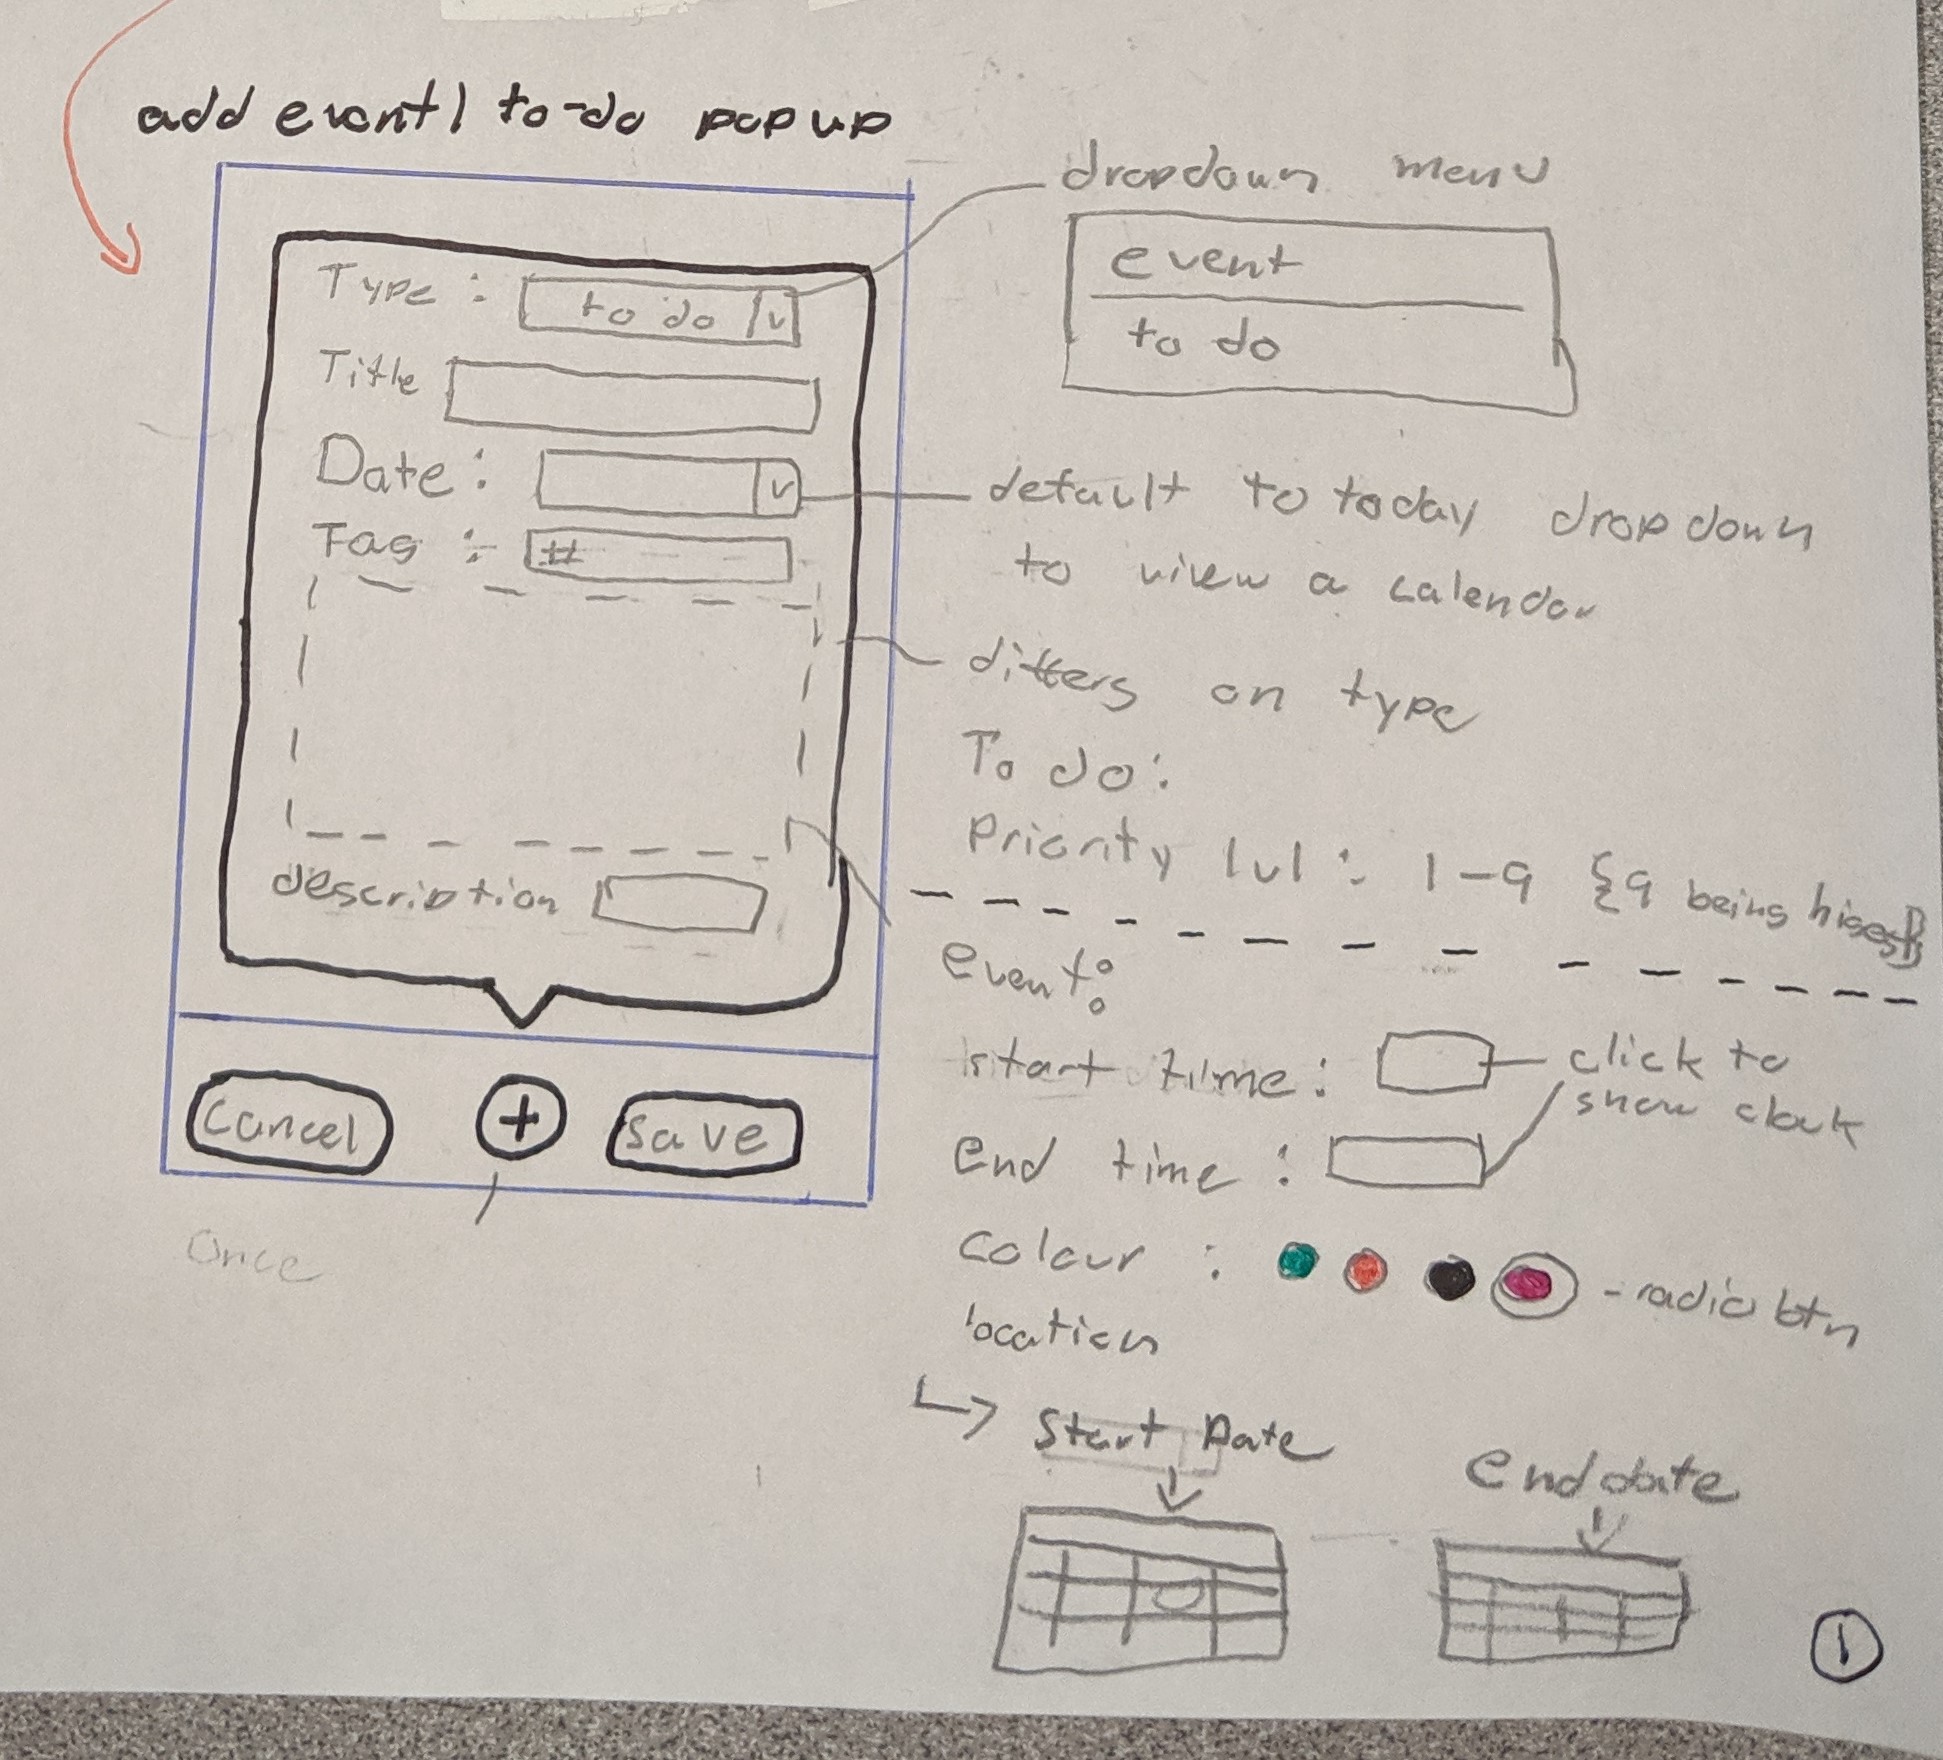 add event/ to-do popup
Type : to do v
Title
Date : v
Tag : #
description
Cancel + save
Once
dropdown menu
event
to do
default to today dropdown
to view a calendar
differs on type
To do:
Priority lvl : 1-9 {9 being higest}
event:
start time :
click to
show clock
end time :
colour : - radio btn
location
Start Date
end date
1